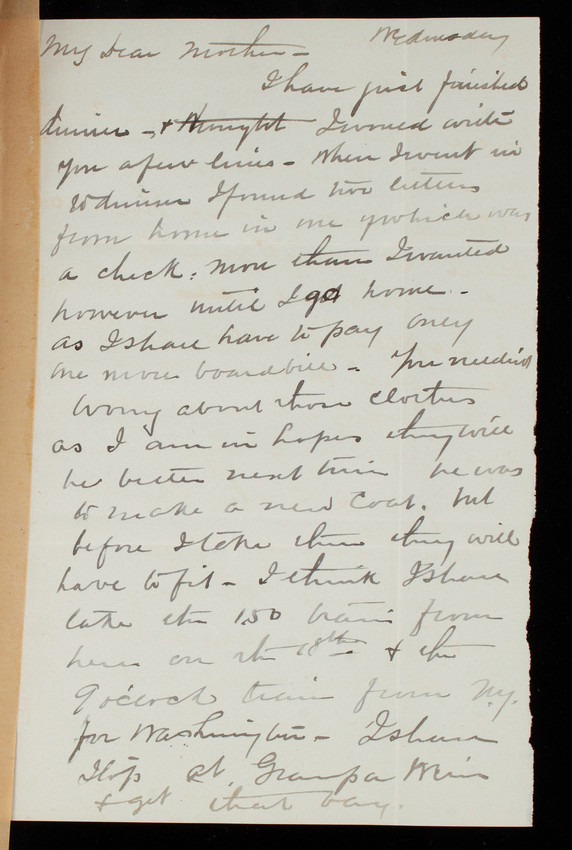 Wednesday
My Dear Mother -
I have just finished
dinner - & thought I would write
you a few lines - When I went in
to dinner I found two letters
from home in one of which was
a check, more than I wanted
however until I get home -
as I shall have to pay only
one more board bill - You needn't
worry about those clothes
as I am in hopes they will
be better next time he was
to make a new coat. but
before I take them they will
have to fit - I think I shall
take the 1.50 train from
here on the 18th & the
9 o'clock train from N.y.
for Washington - I shall
stop at Granpa Weir
& get that bag.